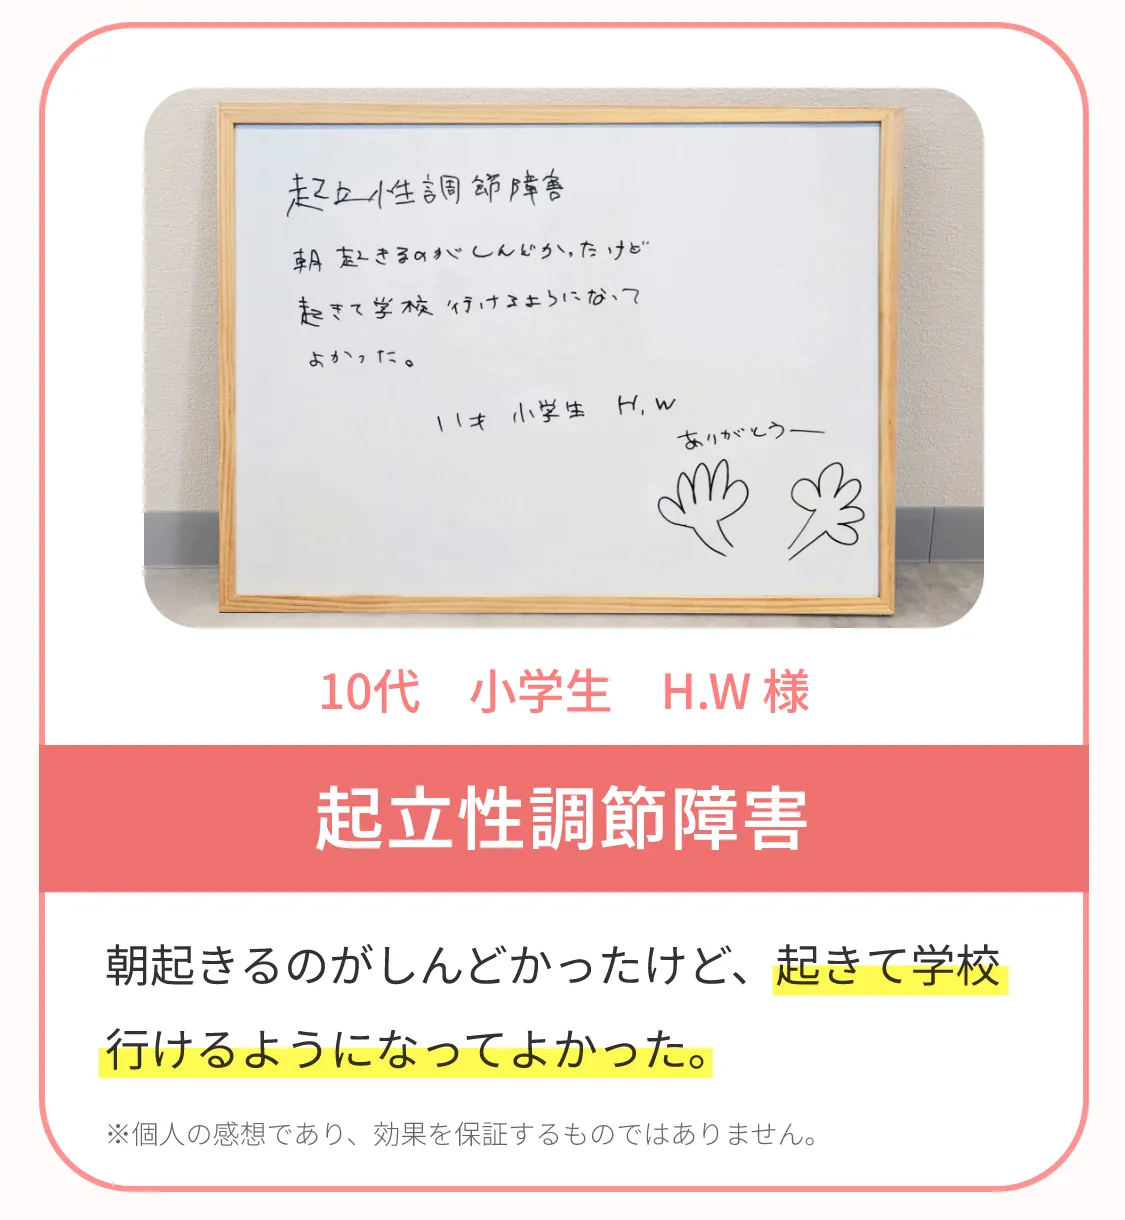 起立性調節障害
朝起きるのがしんどかったけど
起きて学校行けるようになって
よかった。
11才 小学生 H.W
ありがとうー
10代 小学生 H.W 様
起立性調節障害
朝起きるのがしんどかったけど、起きて学校
行けるようになってよかった。
※個人の感想であり、効果を保証するものではありません。